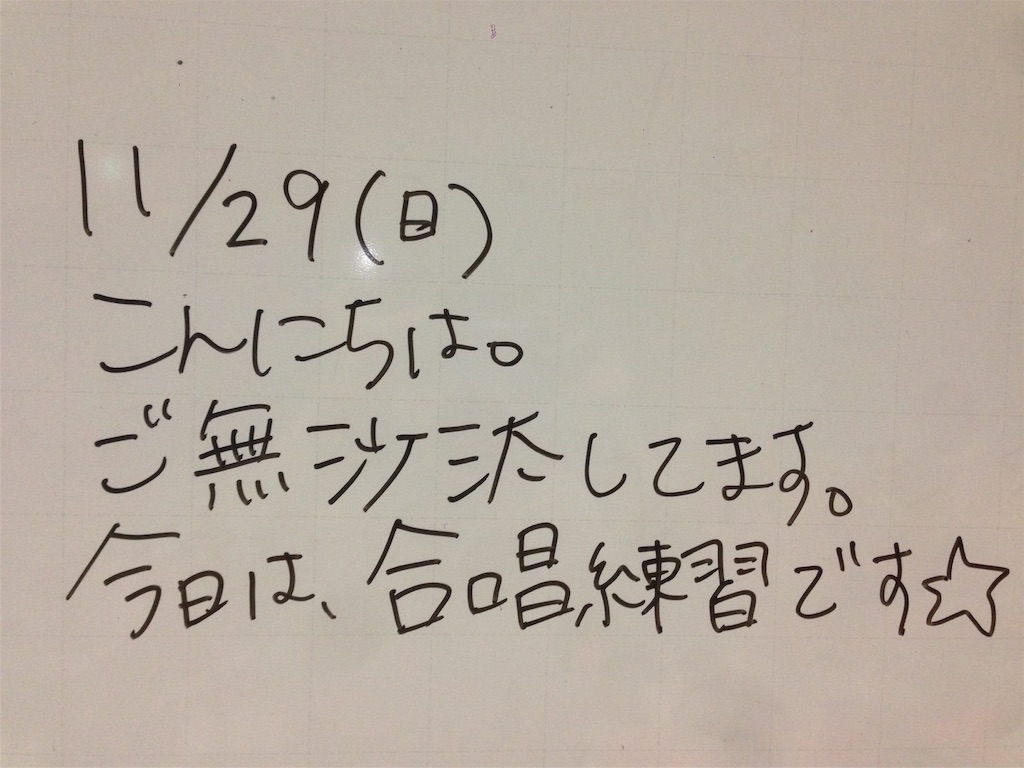 11/29(日)
こんにちは。
ご無沙汰してます。
今日は、合唱練習です☆